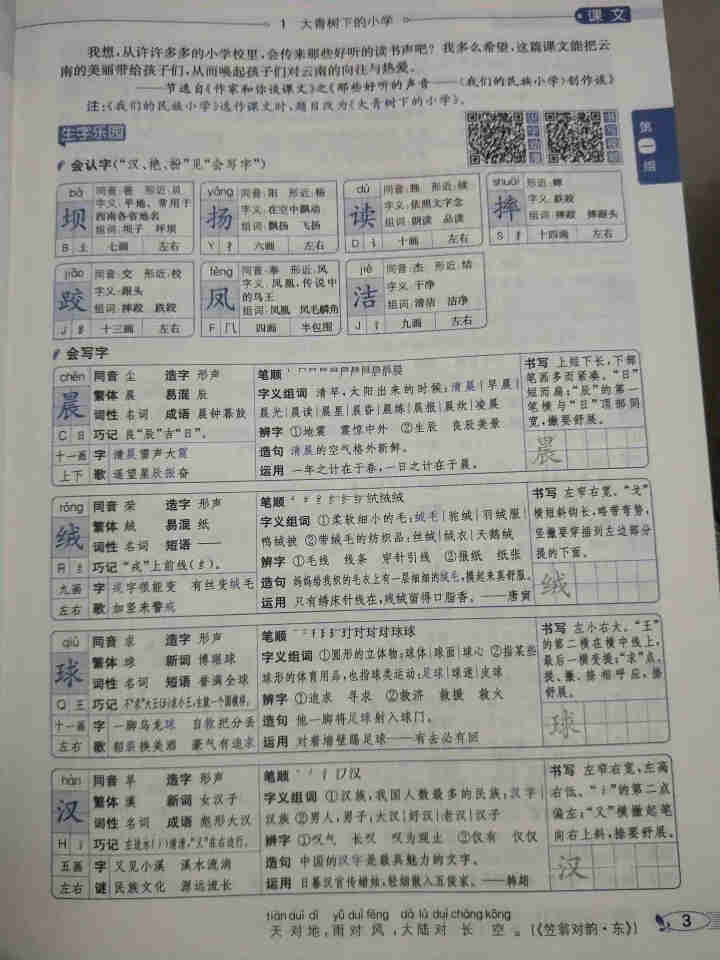 1 大青树下的小学
课文
我想,从许许多多的小学校里,会传来那些好听的读书声吧?我多么希望,这篇课文能把云
南的美丽带给孩子们,从而唤起孩子们对云南的向往与热爱。
——节选自《作家和你谈课文》之《那些好听的声音——〈我们的民族小学〉创作谈》
注:《我们的民族小学》选作课文时,题目改为《大青树下的小学》。
生字乐园
第一组
会认字(“汉、艳、扮”见“会写字”)
bà 坝 同音:爸 形近:贝
字义:平地、常用于
西南各省地名
组词:坝子 坪坝
B 土 七画 左右
yáng 扬 同音:阳 形近:杨
字义:在空中飘动
组词:飘扬 飞扬
Y 扌 六画 左右
dú 读 同音:独 形近:续
字义:依照文字念
组词:朗读 品读
D 讠 十画 左右
shuāi 摔 形近:蟀
字义:跌跤
组词:摔跤 摔跟头
S 扌 十四画 左右
jiāo 跤 同音:交 形近:校
字义:跟头
组词:摔跤 跌跤
J 十三画 左右
fèng 凤 同音:奉 形近:风
字义:凤凰,传说中
的鸟王
组词:凤凰 凤毛麟角
F 几 四画 半包围
jié 洁 同音:杰 形近:结
字义:干净
组词:清洁 洁净
J 氵 九画 左右
会写字
chén 晨 同音 尘 造字 形声
繁体 晨 易混 辰
词性 名词 成语 晨钟暮鼓
C 日 巧记 良“辰”吉“日”。
十一画 字 清晨雷声大震
上下 歌 遥望星辰振奋
笔顺
字义组词 清早,太阳出来的时候:清晨|早晨|
晨光|晨读|晨星|晨昏|晨练|晨报|晨炊|凌晨
辨字 ①地震 震惊中外 ②生辰 良辰美景
造句 清晨的空气格外新鲜。
运用 一年之计在于春,一日之计在于晨。
书写 上短下长,下部
笔画多而紧凑。“日”
短而扁;“辰”的第一
笔横与“日”顶部同
宽,撇要舒展。
晨
róng 绒 同音 荣 造字 形声
繁体 絨 易混 纸
词性 名词 短语 ——
R 纟 巧记 “戎”上前线(纟)。
九画 字 戎字很能变 有丝变绒毛
左右 歌 如至来警戒
笔顺
字义组词 ①柔软细小的毛:绒毛|驼绒|羽绒服|
鸭绒被 ②带绒毛的纺织品:丝绒|绒衣|天鹅绒
辨字 ①毛线 线条 穿针引线 ②报纸 纸张
造句 妈妈给我织的毛衣上有一层细细的绒毛,摸起来真舒服。
运用 只有绣床针线在,残绒留得口脂香。——唐寅
书写 左窄右宽。“戈”
横短斜钩长,略带弯势,
竖撇要穿插到左边部分
提的下面。
绒
qiú 球 同音 求 造字 形声
繁体 球 新词 博眼球
词性 名词 短语 誉满全球
Q 王 巧记 不“求”大王(王)求小王,生就一个圆模样。
十一画 字 一脚乌龙球 自救把分丢
左右 歌 豪气有追求
笔顺
字义组词 ①圆形的立体物:球体|球面|球心 ②指某些
球形的体育用品,也指球类运动:足球|球迷|皮球
辨字 ①追求 寻求 ②救济 救援 救火
造句 他一脚将足球射入球门。
运用 对着墙壁踢足球——有去必有回
书写 左小右大。“王”
的第二横在横中线上,
最后一横变提;“求”点、
提、撇、捺相呼应,捺
舒展。
球
hàn 汉 同音 旱 造字 形声
繁体 漢 新词 女汉子
词性 名词 成语 彪形大汉
H 氵
五画 字 又见小溪 溪水流淌
左右 谜 民族文化 源远流长
笔顺
字义组词 ①汉族,我国人数最多的民族:汉字|
汉族 ②男人,男子:大汉|好汉|老汉|汉子
辨字 ①叹气 长叹 叹为观止 ②仅有 仅仅
造句 中国的汉字是最具魅力的文字。
运用 日暮汉宫传蜡烛,轻烟散入五侯家。——韩翃
书写 左窄右宽,左高
右低。“氵”的第二点
偏左;“又”横撇起笔
向右上斜,捺要舒展。
汉
tiān duì dì yǔ duì fēng dà lù duì cháng kōng
天对地,雨对风,大陆对长空。(《笠翁对韵·东》)
3